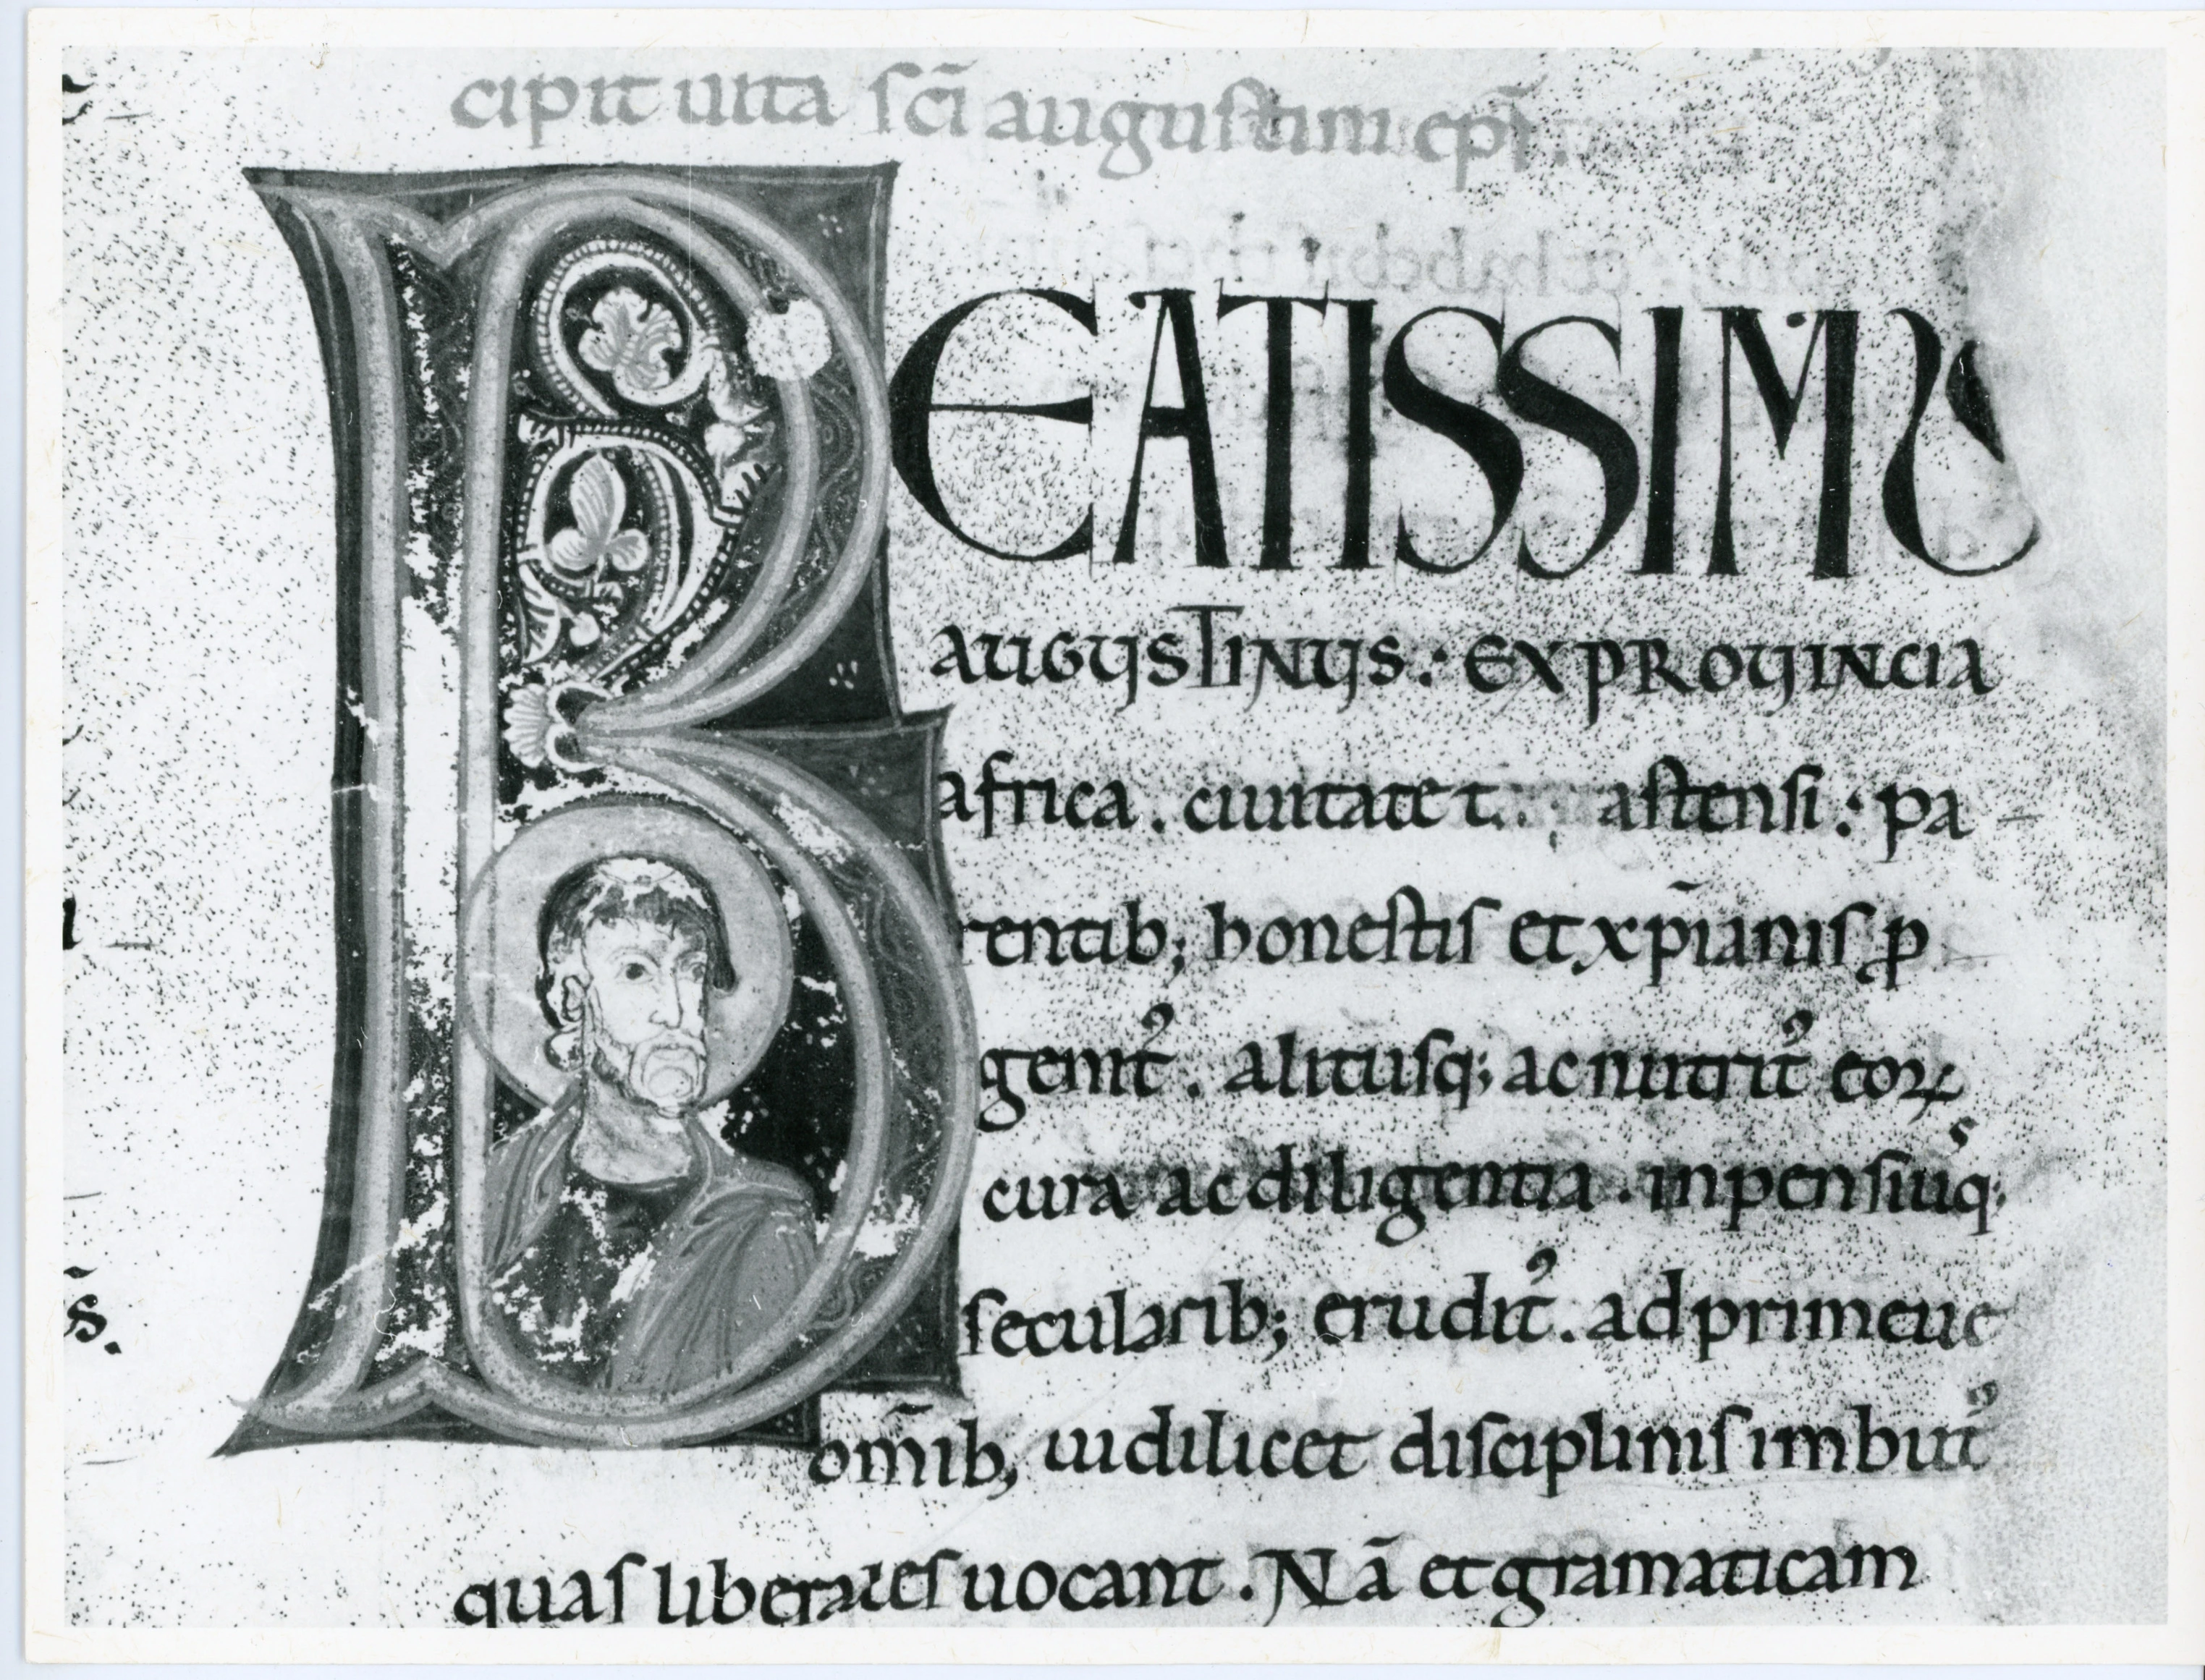 cipit uita sc̄i augustini ep̄i.
BEATISSIMUS
AUGUSTINUS : EX PROUINCIA
africa . ciuitate t astensi : pa
rentib; honestis et xp̄ianis ꝓ
genit᷒ . alitusq; ac nutrit᷒ eoꝝ
cura ac diligentia . inpensiuq;
secularib; erudit᷒ . ad prime ue
om̄ib; uidilicet disciplinis imbut᷒
quas liberales uocant . Nā et gramaticam
s.